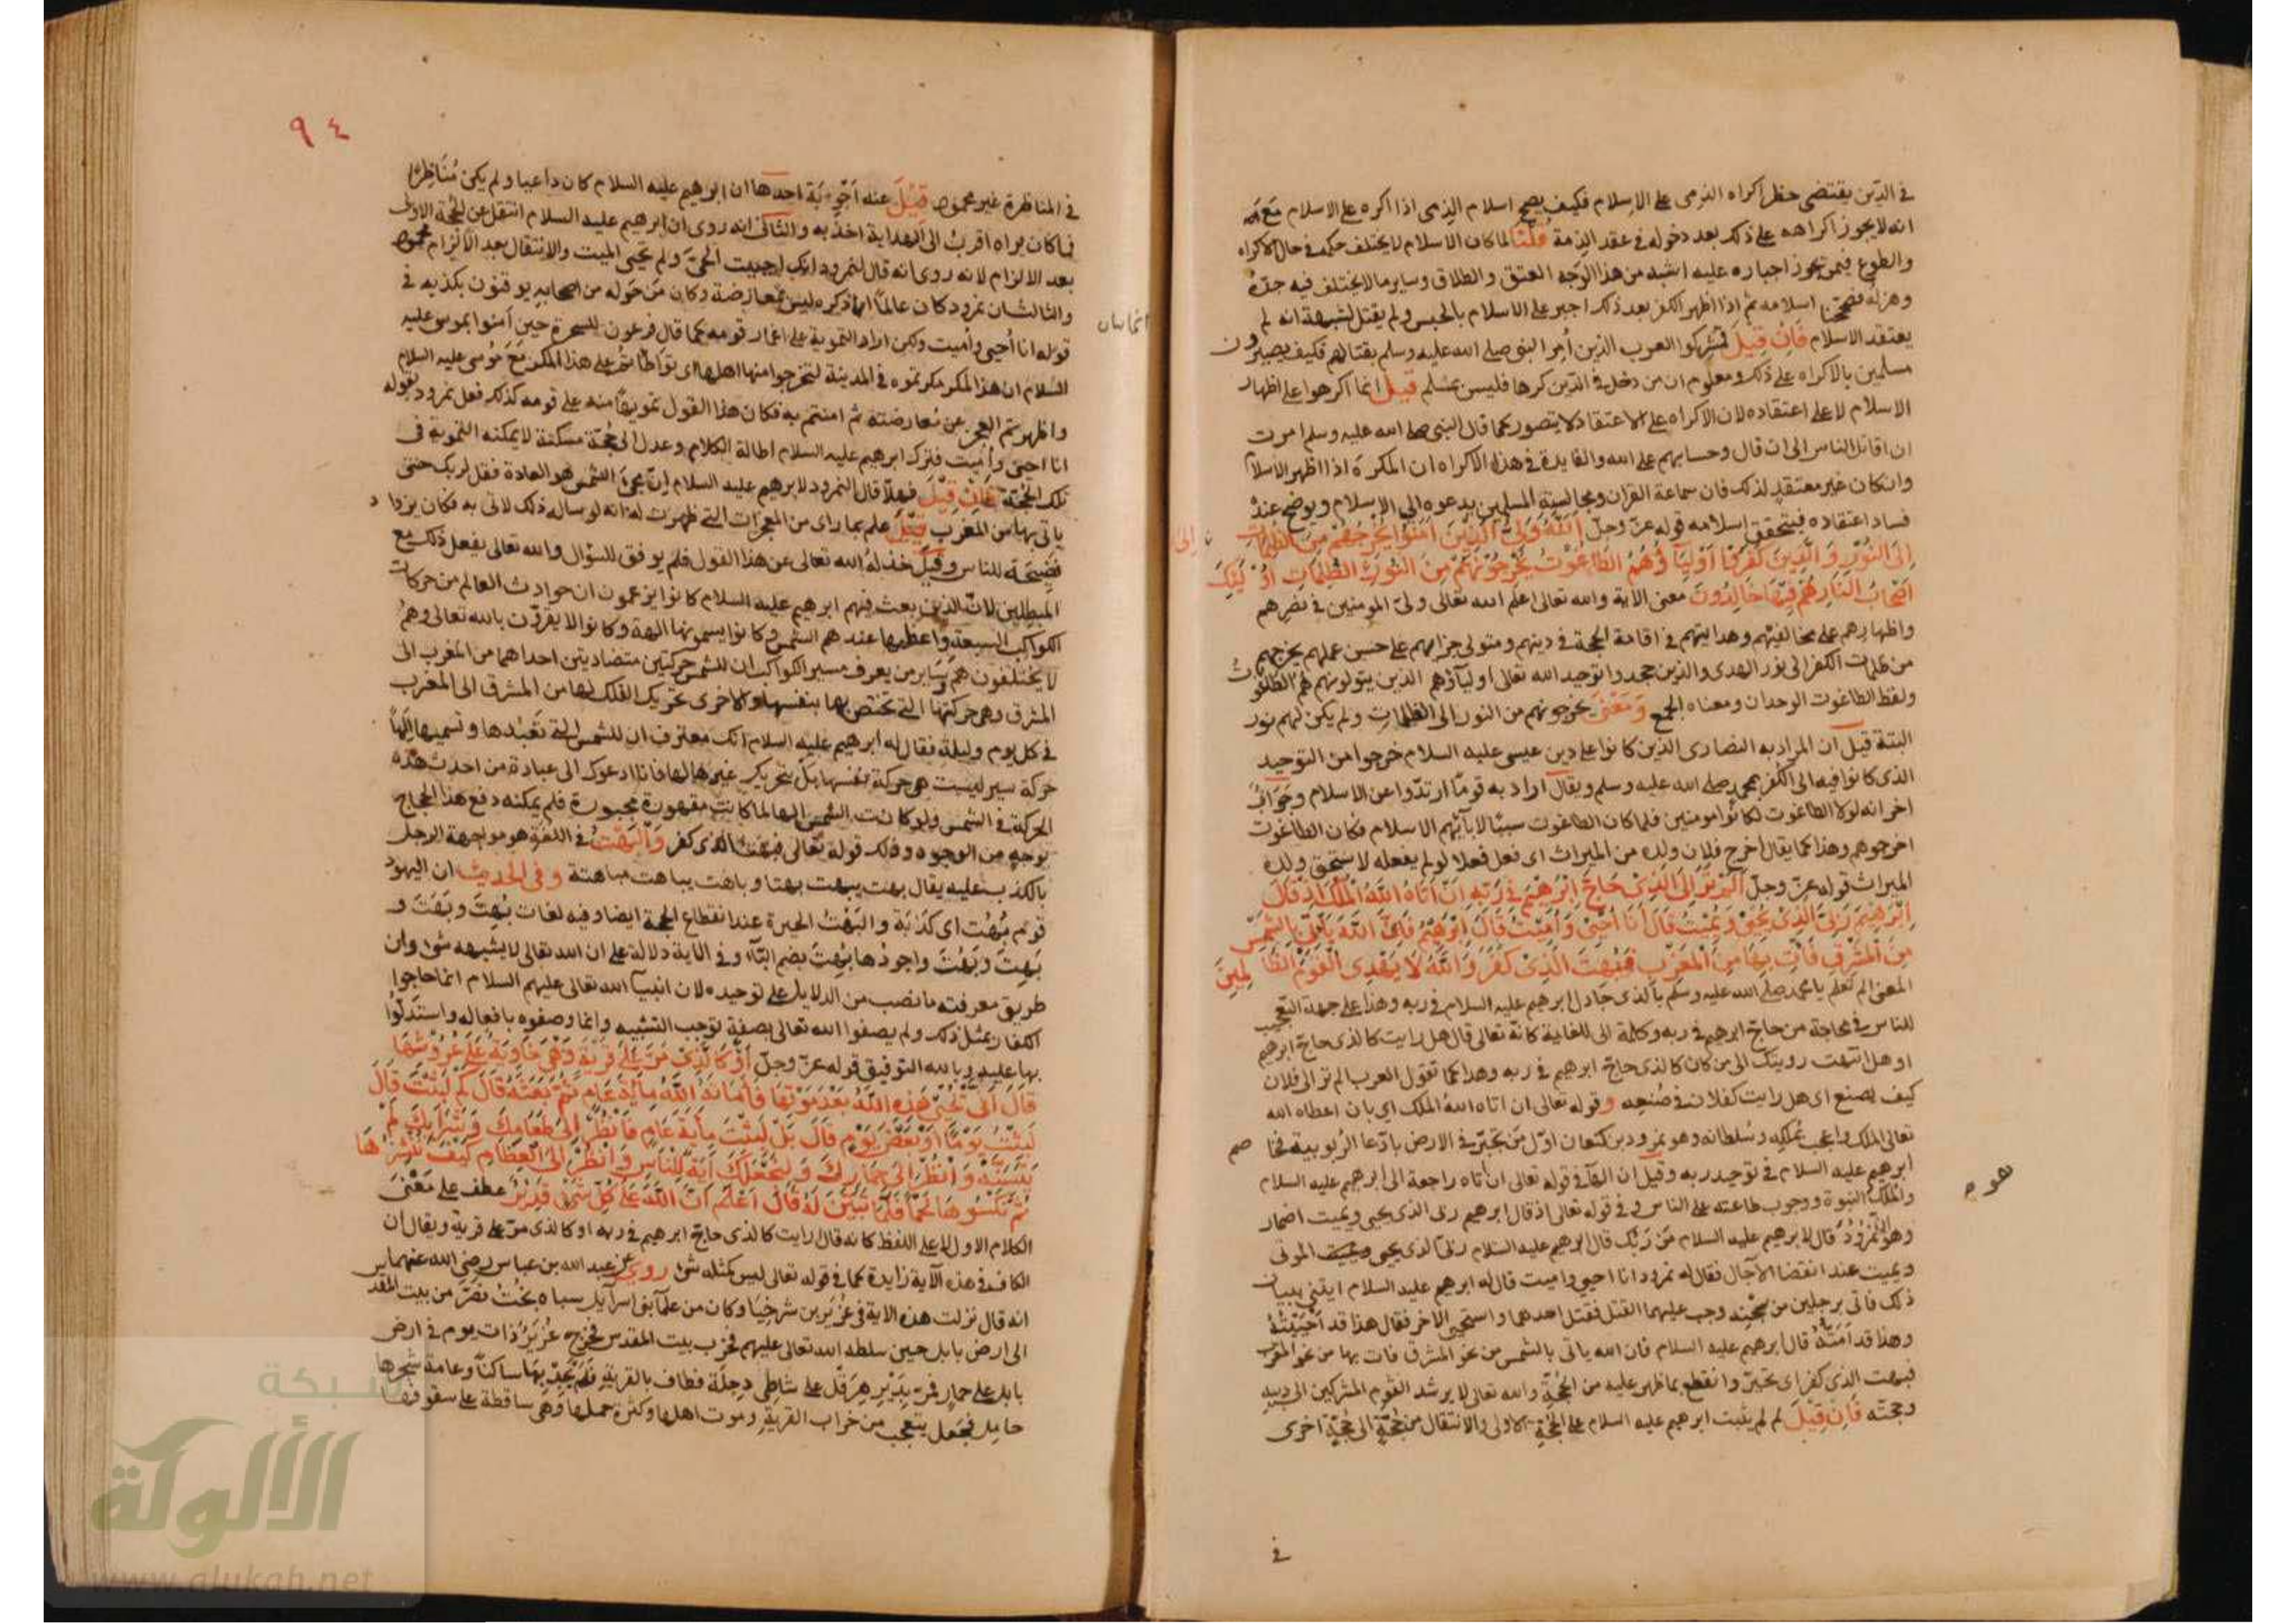 في الدين يقتضى حظر اكراه الذمى على الاسلام فكيف يصح اسلام الذمى اذا اكره على الاسلام مع
انه لا يجوز اكراهه على ذلك بعد دخوله في عقد الذمة قلنا لما كان الاسلام لا يختلف حكمه في حال الاكراه
والطوع فيمن يجوز اجباره عليه اشبه من هذا الوجه العتق والطلاق وساير ما لا يختلف فيه جده
وهزله فصححنا اسلامه ثم اذا اظهر الكفر بعد ذلك اجبر على الاسلام بالحبس ولم يقتل لشبهة انه لم
يعتقد الاسلام فان قيل فمشركوا العرب الذين أمر النبي صلى الله عليه وسلم بقتالهم فكيف يصيرون
مسلمين بالاكراه على ذلك ومعلوم ان من دخل في الدين كرها فليس بمسلم قيل انما اكرهوا على اظهار
الاسلام لا على اعتقاده لان الاكراه على الاعتقاد لا يتصور كما قال النبي صلى الله عليه وسلم امرت
ان اقاتل الناس الى ان قال وحسابهم على الله والفايدة في هذا الاكراه ان المكرة اذا اظهر الاسلام
وان كان غير معتقد لذلك فان سماعة القران ومجالسة المسلمين يدعوه الى الاسلام ويوضح عنده
فساد اعتقاده فيتحقق اسلامه قوله عز وجل الله ولى الذين امنوا يخرجهم من الظلمات
الى النور والذين كفروا اوليآؤهم الطاغوت يخرجونهم من النور الى الظلمات اولئك
اصحاب النار هم فيها خالدون معنى الاية والله تعالى اعلم الله تعالى ولى المومنين في نصرهم
واظهارهم على مخالفيهم وهدايتهم في اقامة الحجة في دينهم ومتولى جزائهم على حسن عملهم يخرجهم
من ظلمات الكفر الى نور الهدى والذين جحدوا توحيد الله تعالى اوليآؤهم الذين يتولونهم هم الطاغوت
ولفظ الطاغوت الوحدان ومعناه الجمع ومعنى يخرجونهم من النور الى الظلمات ولم يكن لهم نور
البتة قيل ان المراد به النصارى الذين كانوا على دين عيسى عليه السلام خرجوا من التوحيد
الذى كانوا فيه الى الكفر بمحمد صلى الله عليه وسلم ويقال اراد به قوما ارتدوا عن الاسلام وجواب
اخر انه لولا الطاغوت لكانوا مومنين فلما كان الطاغوت سببا لابائهم الاسلام فكان الطاغوت
اخرجوهم وهذا كما يقال اخرج فلان ولده من الميراث اى فعل فعلا لو لم يفعله لاستحق ولده
الميراث قوله عز وجل الم تر الى الذى حاج ابرهيم في ربه ان اتاه الله الملك اذ قال
ابرهيم ربى الذى يحيى ويميت قال انا احيى واميت قال ابرهيم فان الله يأتى بالشمس
من المشرق فأت بها من المغرب فبهت الذى كفر والله لا يهدى القوم الظالمين
المعنى الم تعلم يا محمد صلى الله عليه وسلم بالذى جادل ابرهيم عليه السلام في ربه وهذا على جهة التعجيب
للناس في محاجة من حاج ابرهيم في ربه وكلمة الى للغاية كانه تعالى قال هل رايت كالذى حاج ابرهيم
او هل انتهت رويتك الى من كان كالذى حاج ابرهيم في ربه وهذا كما تقول العرب الم تر الى فلان
كيف يصنع اى هل رايت كفلان في صنعه وقوله تعالى ان اتاه الله الملك اي بان اعطاه الله
تعالى الملك واعجب بملكه وسلطانه وهو نمرود بن كنعان اول من تجبر في الارض بادعا الربوبية
ابرهيم عليه السلام في توحيد ربه وقيل ان الهآ في قوله تعالى ان اتاه راجعة الى ابرهيم عليه السلام
والملك النبوة ووجوب طاعته على الناس وفي قوله تعالى اذ قال ابرهيم ربى الذى يحيى ويميت اضمار
وهو النمرود قال لابرهيم عليه السلام من ربك قال ابرهيم عليه السلام ربى الذى يحيى الموتى
ويميت عند انقضا الآجال فقال له نمرود انا احيى واميت قال له ابرهيم عليه السلام ايتنى ببيان
ذلك فاتى برجلين من سجنه وجب عليهما القتل فقتل احدهما واستحيى الاخر فقال هذا قد احييته
وهذا قد امته قال ابرهيم عليه السلام فان الله ياتى بالشمس من نحو المشرق فات بها من نحو المغرب
فبهت الذى كفر اى تحير وانقطع بما ظهر عليه من الحجة والله تعالى لا يرشد القوم المشركين الى دينه
وحجته فان قيل لم لم يثبت ابرهيم عليه السلام على الحجة الاولى والانتقال من حجة الى حجة اخرى
في
٩٤
في المناظرة غير محمود قيل عنه اجوبة احدها ان ابرهيم عليه السلام كان داعيا ولم يكن مناظرا
فما كان يراه اقرب الى الهداية اخذ به والثانى انه روى ان ابرهيم عليه السلام انتقل عن الحجة الاولى
بعد الالزام لانه روى انه قال لنمرود انك احييت الحى ولم تحيى الميت والانتقال بعد الالزام محمود
والثالث ان نمرود كان عالما ان ما ذكره ليس بمعارضة وكان من حوله من اصحابه يوقنون بكذبه في
قوله انا أحيى وأميت ولكن اراد التموية على اغمار قومه كما قال فرعون للسحرة حين آمنوا بموسى عليه
السلام ان هذا لمكر مكرتموه في المدينة لتخرجوا منها اهلها اى تواطأتم على هذا المكر مع موسى عليه السلام
واظهرتم العجز عن معارضته ثم امنتم به فكان هذا القول تمويها منه على قومه كذلك فعل نمرود بقوله
انا احيى وأميت فترك ابرهيم عليه السلام اطالة الكلام وعدل الى حجة مسكتة لا يمكنه التمويه في
تلك الحجة فان قيل فهلا قال النمرود لابرهيم عليه السلام ان مجئ الشمس هو العادة فقل لربك حتى
ياتى بها من المغرب قيل علم بما راى من المعجزات التى ظهرت له انه لو ساله ذلك لاتى به فكان يزداد
فضيحة للناس وقيل خذله الله تعالى عن هذا القول فلم يوفق للسؤال والله تعالى يفعل ذلك مع
المبطلين لان الذين بعث فيهم ابرهيم عليه السلام كانوا يزعمون ان حوادث العالم من حركات
الكواكب السبعة واعظمها عندهم الشمس وكانوا يسمونها الهة وكانوا لا يقرون بالله تعالى وهم
لا يختلفون هم وساير من يعرف مسير الكواكب ان للشمس حركتين متضادتين احداهما من المغرب الى
المشرق وهى حركتها التى تختص بها بنفسها والاخرى تحريك الفلك لها من المشرق الى المغرب
في كل يوم وليلة فقال له ابرهيم عليه السلام انك معترف ان للشمس التى تعبدها وتسميها الها
حركة سير ليست هى حركة نفسها بل بتحريك غيرها لها فانا ادعوك الى عبادة من احدث هذه
الحركة في الشمس ولو كانت الشمس الها لما كانت مقهورة مجبورة فلم يمكنه دفع هذا الحجاج
بوجه من الوجوه وذلك قوله تعالى فبهت الذى كفر والبهت في اللغة هو مواجهة الرجل
بالكذب عليه يقال بهت يبهت بهتا وباهت يباهت مباهتة وفى الحديث ان اليهود
قوم بهت اى كذبة والبهت الحيرة عند انقطاع الحجة ايضا وفيه لغات بهت وبهت و
بهت وبهت واجودها بهت بضم البآء وفى الاية دلالة على ان الله تعالى لا يشبهه شئ وان
طريق معرفته ما نصب من الدلايل على توحيده لان انبيآ الله تعالى عليهم السلام انما حاجوا
الكفار بمثل ذلك ولم يصفوا الله تعالى بصفة توجب التشبيه وانما وصفوه بافعاله واستدلوا
بها عليه وبالله التوفيق قوله عز وجل أو كالذى مر على قرية وهى خاوية على عروشها
قال أنى يحيى هذه الله بعد موتها فأماته الله مأية عام ثم بعثه قال كم لبثت قال
لبثت يوما او بعض يوم قال بل لبثت مأية عام فانظر الى طعامك وشرابك لم
يتسنه وانظر الى حمارك ولنجعلك آية للناس وانظر الى العظام كيف ننشزها
ثم نكسوها لحما فلما تبين له قال اعلم ان الله على كل شئ قدير عطف على معنى
الكلام الاول لا على اللفظ كانه قال ارايت كالذى حاج ابرهيم في ربه او كالذى مر على قرية ويقال ان
الكاف في هذه الآية زايدة كما في قوله تعالى ليس كمثله شئ روى عن عبد الله بن عباس رضى الله عنهما
انه قال نزلت هذه الاية في عزير بن شرخيا وكان من علمآ بنى اسرآيل سباه بخت نصر من بيت المقدس
الى ارض بابل حين سلطه الله تعالى عليهم فخرب بيت المقدس فخرج عزير ذات يوم في ارض
بابل على حمار فمر بدير هرقل على شاطى دجلة فطاف بالقرية فلم يجد بها ساكنا وعامة شجرها
حامل فجعل يتعجب من خراب القرية وموت اهلها وكثرة حملها وهى ساقطة على سقوفها
شبكة
الألوكة
www.alukah.net